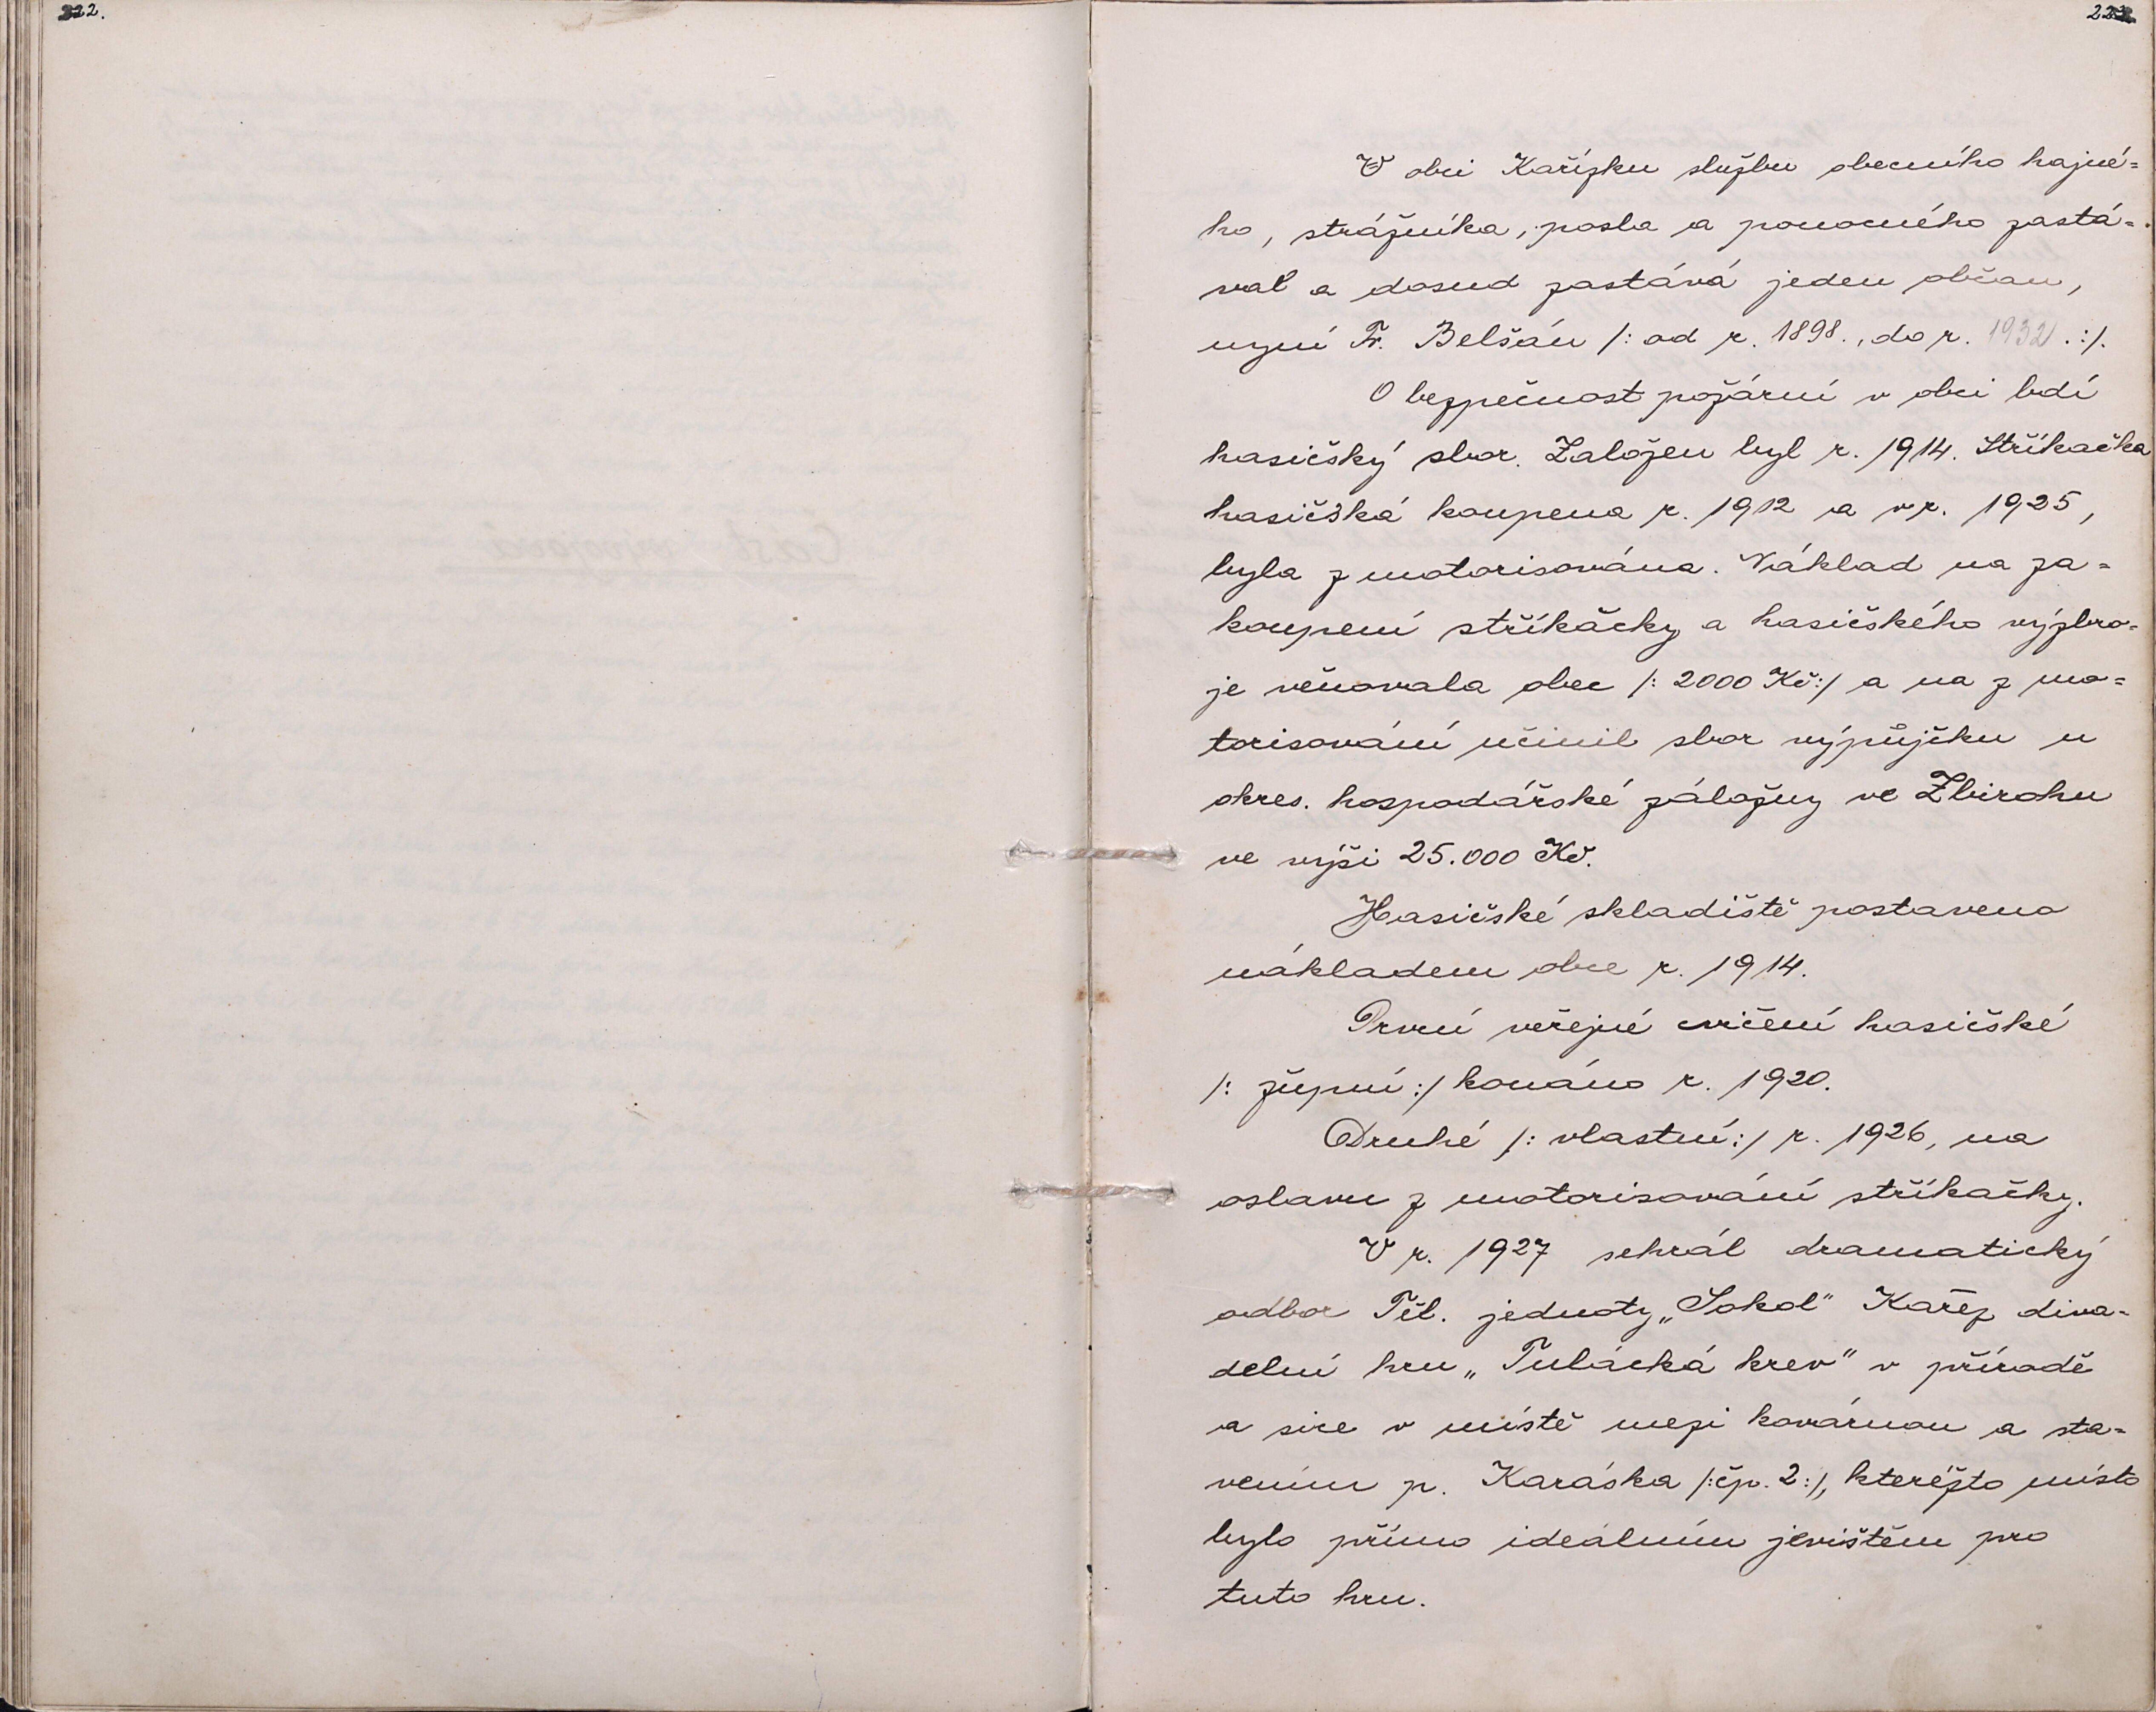 V obci Kařízku službu obecního hajné=
ho, strážníka, posla a ponocného zastá=
val a dosud zastává jeden občan,
nyní Fr. Belšán /: od r. 1898., do r. 1932 . :/.
O bezpečnost požární v obci bdí
hasičský sbor. Založen byl r. 1914. Stříkačka
hasičská koupena r. 1912 a v r. 1925,
byla z motorisována. Náklad na za=
koupení stříkačky a hasičského výzbro=
je věnovala obec /: 2000 Kč :/ a na z mo=
torisování učinil sbor výpůjčku u
okres. hospodářské záložny ve Zbirohu
ve výši 25.000 Kč.
Hasičské skladiště postaveno
nákladem obce r. 1914.
První veřejné cvičení hasičské
/: župní :/ konáno r. 1920.
Druhé /: vlastní :/ r. 1926, na
oslavu z motorisování stříkačky.
V r. 1927 sehrál dramatický
odbor Těl. jednoty „Sokol" Kařez diva=
delní hru „Tulácká krev" v přírodě
a sice v místě mezi kovárnou a sta=
vením p. Karáska /: čp. 2 :/, kteréžto místo
bylo přímo ideálním jevištěm pro
tuto hru.